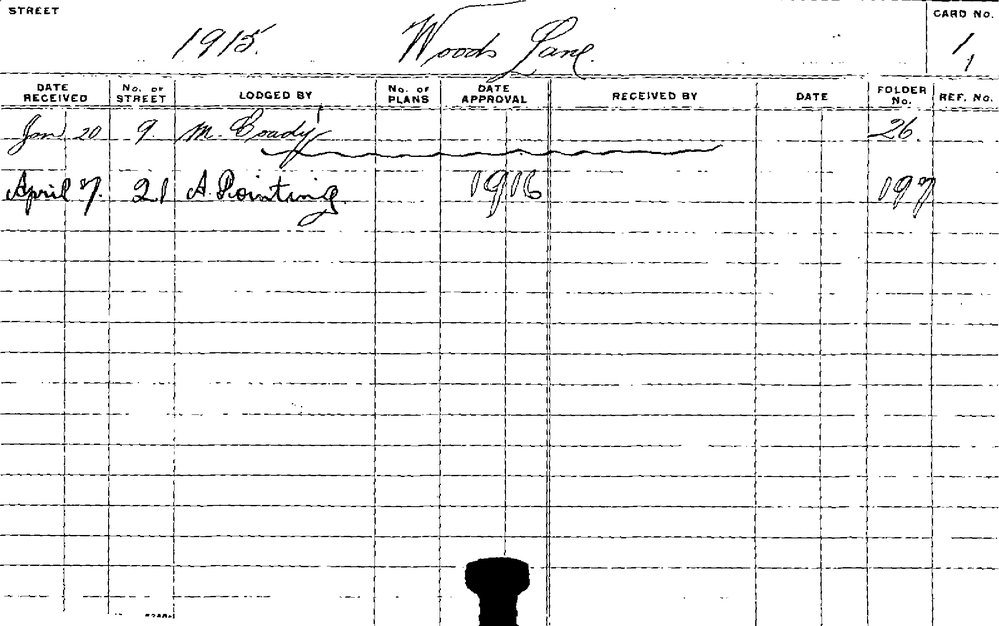 STREET 1915. Woods Lane. CARD No. 1
1
DATE RECEIVED No. OF STREET LODGED BY No. OF PLANS DATE APPROVAL RECEIVED BY DATE FOLDER No. REF. No.
Jan 20 9. M. Coady 26
April 7. 21 A. Pointing 1916 197